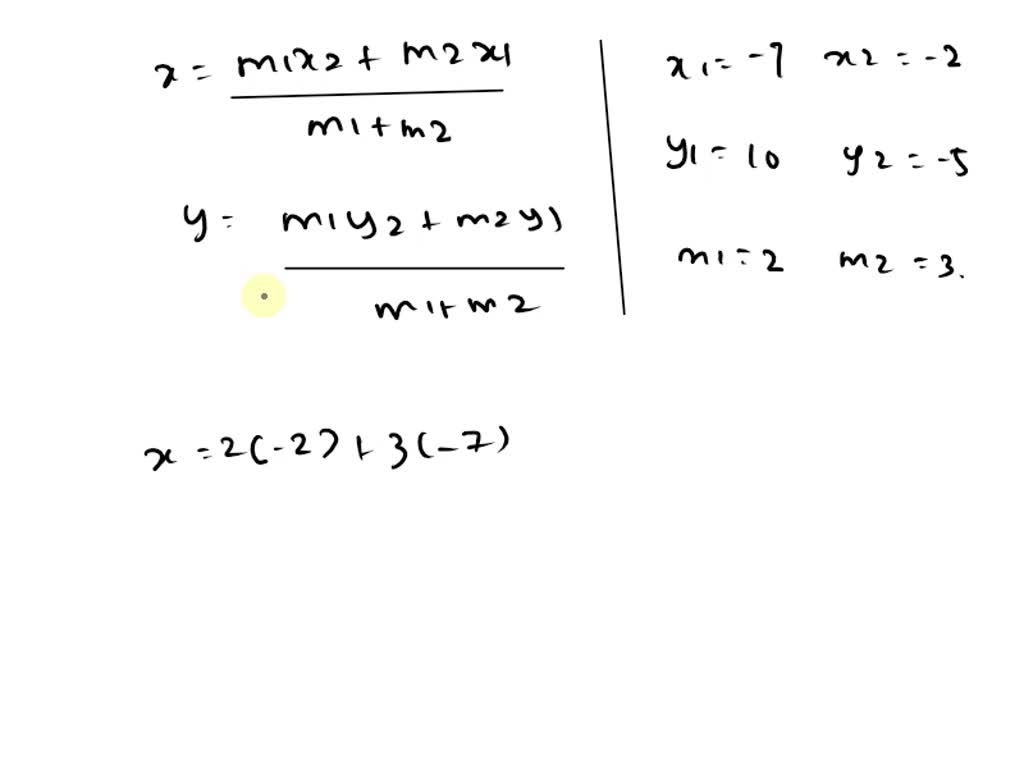 x = m1x2 + m2x1
m1 + m2
y = m1y2 + m2y1
m1 + m2
x1 = -7 x2 = -2
y1 = 10 y2 = -5
m1 = 2 m2 = 3.
x = 2(-2) + 3(-7)